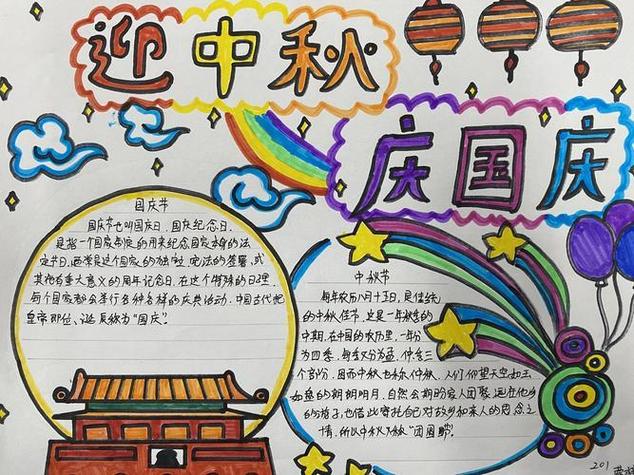 迎中秋
庆国庆
国庆节
国庆节也叫国庆日、国庆纪念日,
是指一个国家制定的用来纪念国家本身的法
定节日,通常是这个国家的独立、宪法的签署,或
其他有重大意义的周年纪念日,在这个特殊的日子里
每个国家都会举行各种各样的庆典活动,中国古代把
皇帝即位、诞辰称为“国庆”。
中秋节
每年农历八月十五日,是传统
的中秋佳节,这是一年秋季的
中期,在中国的农历里,一年分
为四季,每季又分为孟、仲、季三
个部分,因而中秋也称仲秋,人们仰望天空如玉
如盘的朗朗明月,自然会期盼家人团聚,远在他乡
的游子,也借此寄托自己对故乡和亲人的思念之
情,所以中秋又称“团圆节”。
201